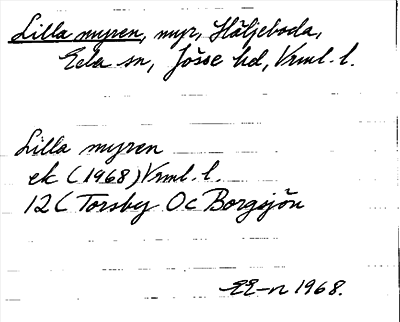 Lilla myren, myr, Häljeboda,
Eda sn, Jösse hd, Vrml. l.
Lilla myren
ek (1968) Vrml. l.
12C Torsby Oc Borgsjön
EE-n 1968.